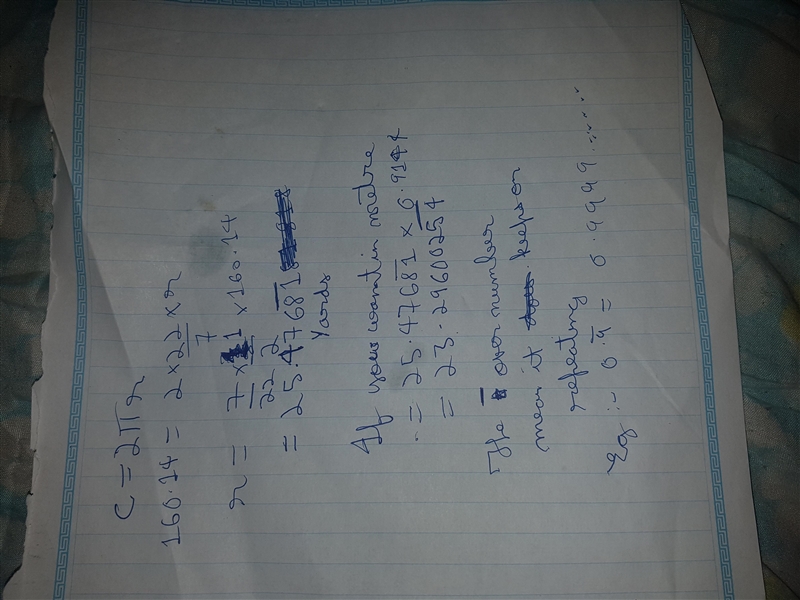 C = 2πr
160.14 = 2 × 22/7 × r
r = 7/22 × 1/2 × 160.14
= 25.47681̅
Yards
If you want in metre
= 25.4768̅1̅ × 0.914
= 23.296002̅5̅4
The - over number
mean it keeps on
repeating
Eg :- 0.9̅ = 0.9999......